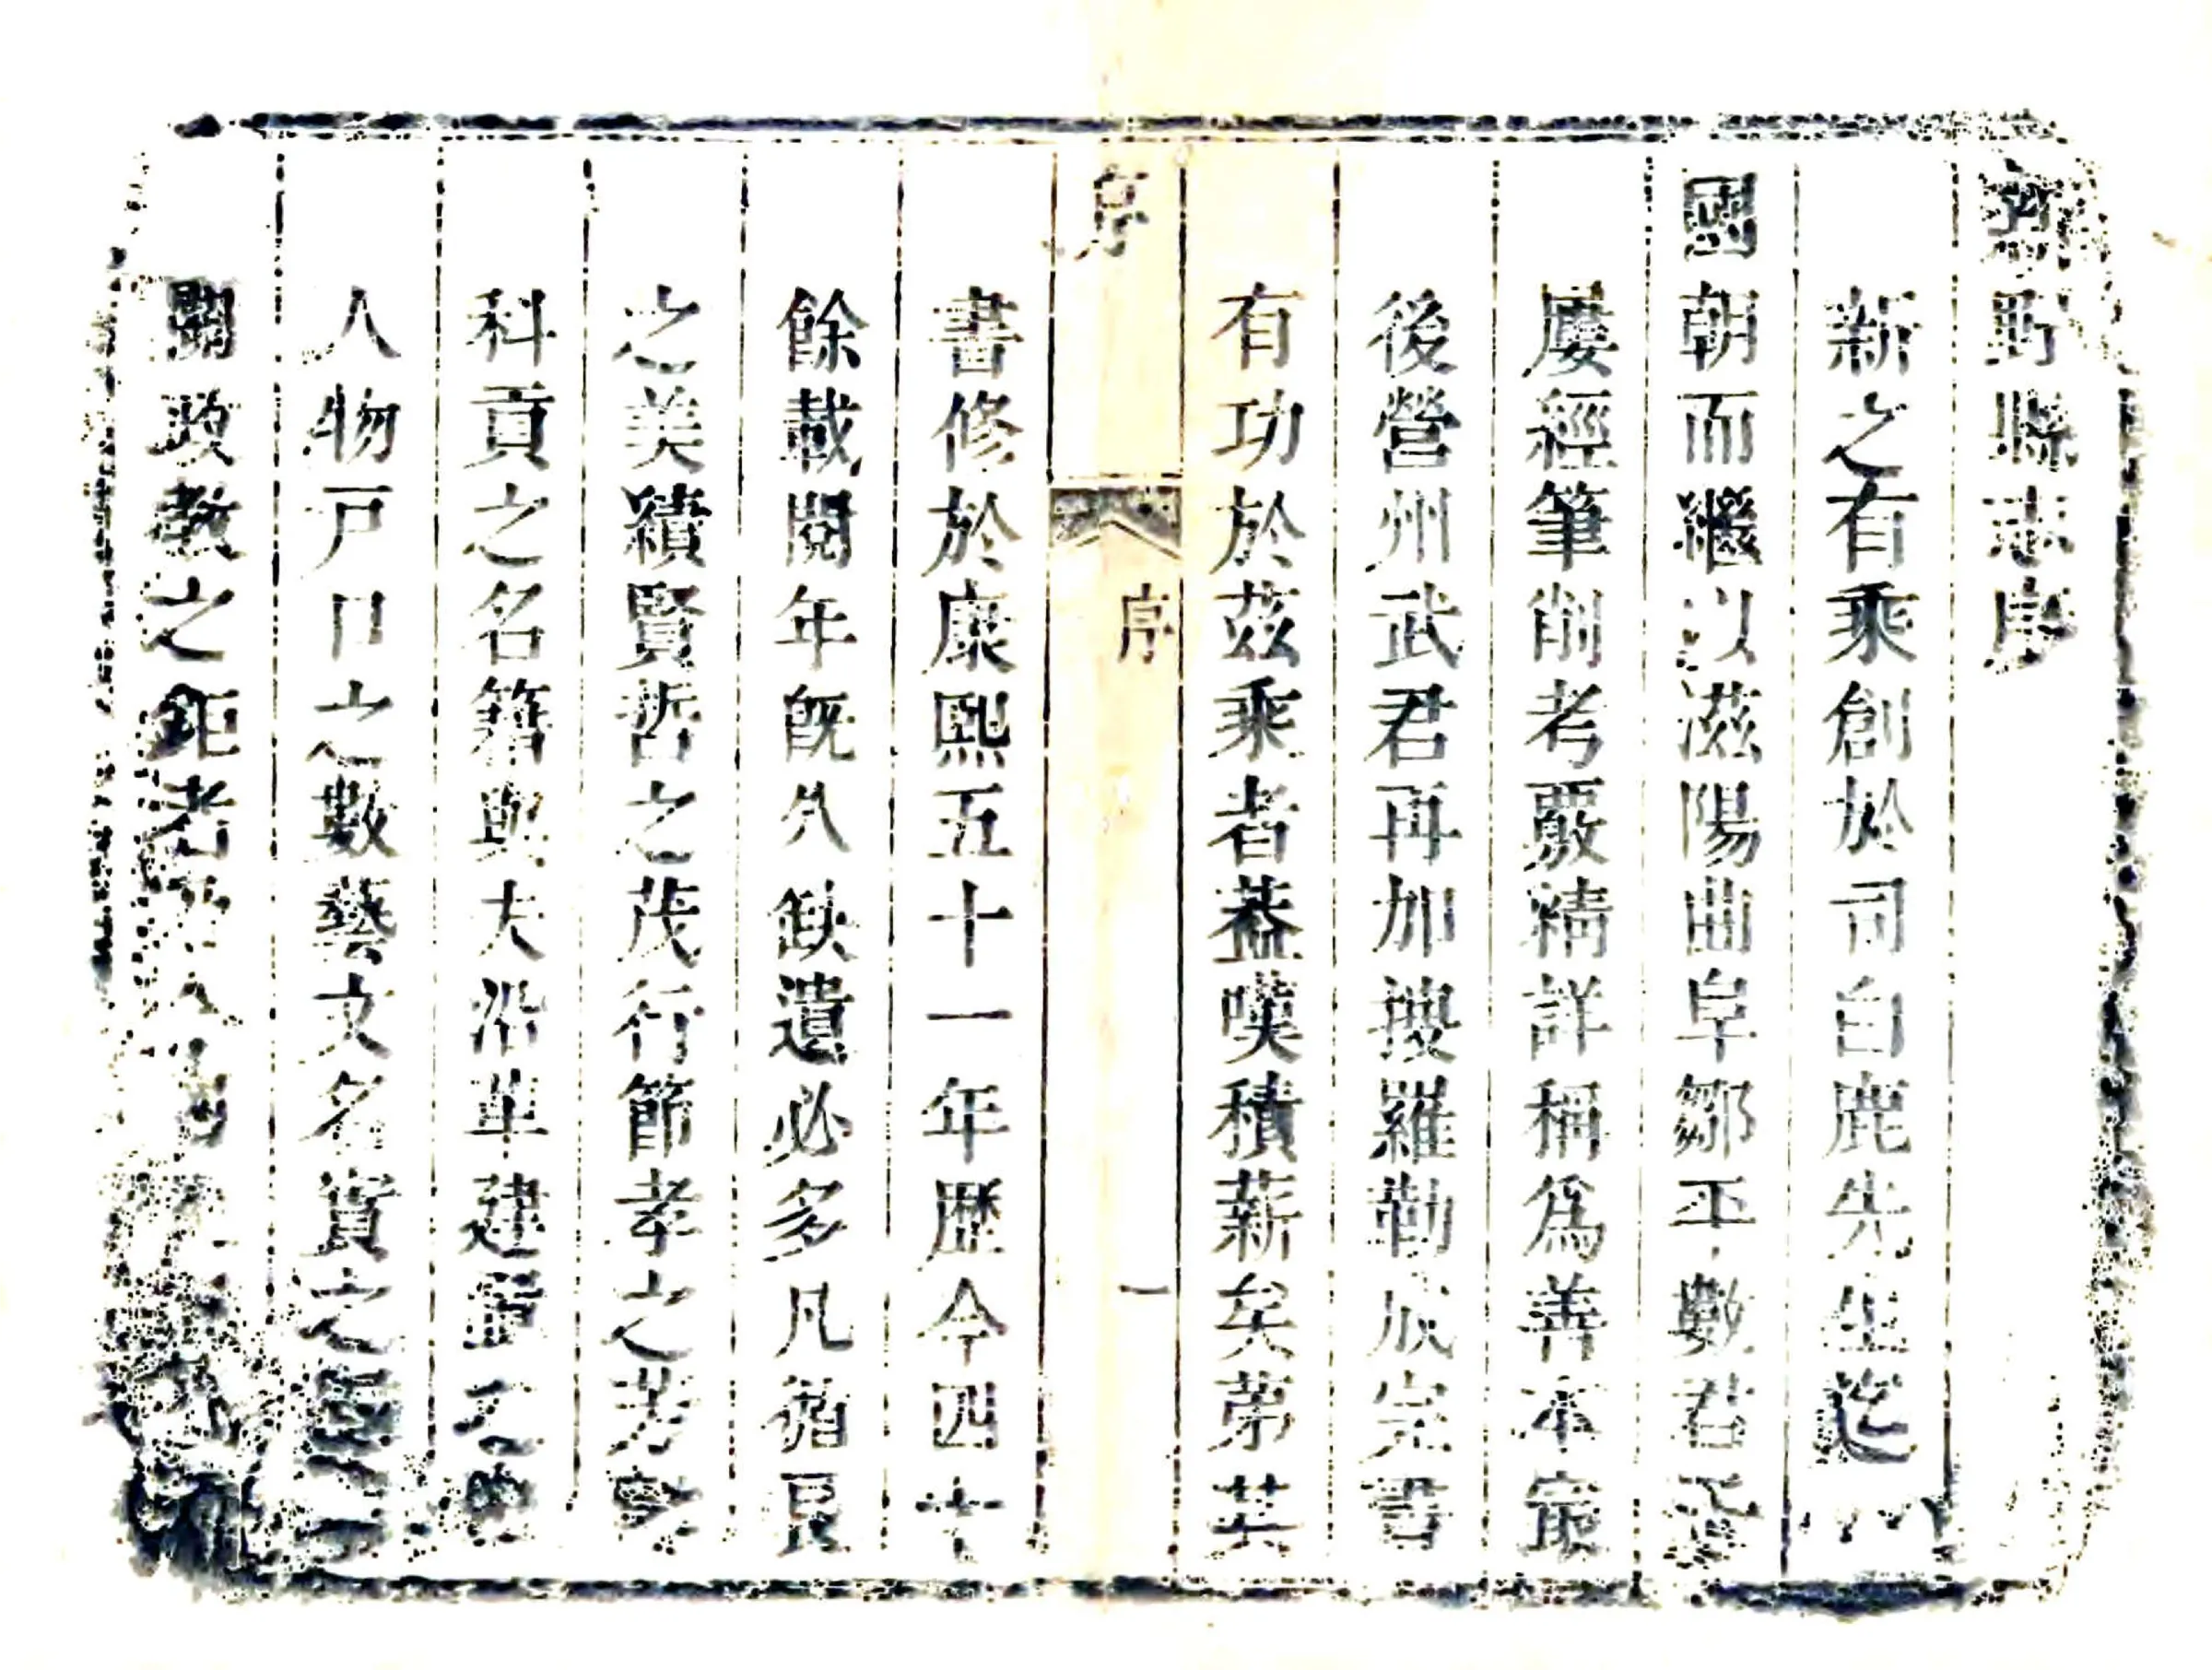 新野縣志序
新之有乘創於司白鹿先生迄
國朝而繼以滋陽曲阜鄒平數君子
屢經筆削考覈精詳稱爲善本最
後營州武君再加搜羅勒成完書
有功於茲乘者蓋嘆積薪矣第其
序
序
一
書修於康熙五十一年歷今四十
餘載閱年旣久缺遺必多凡循良
之美績賢哲之茂行節孝之芳
科貢之名籍與夫沿革建置之
人物戸口之數藝文名實之
關政教之鉅者